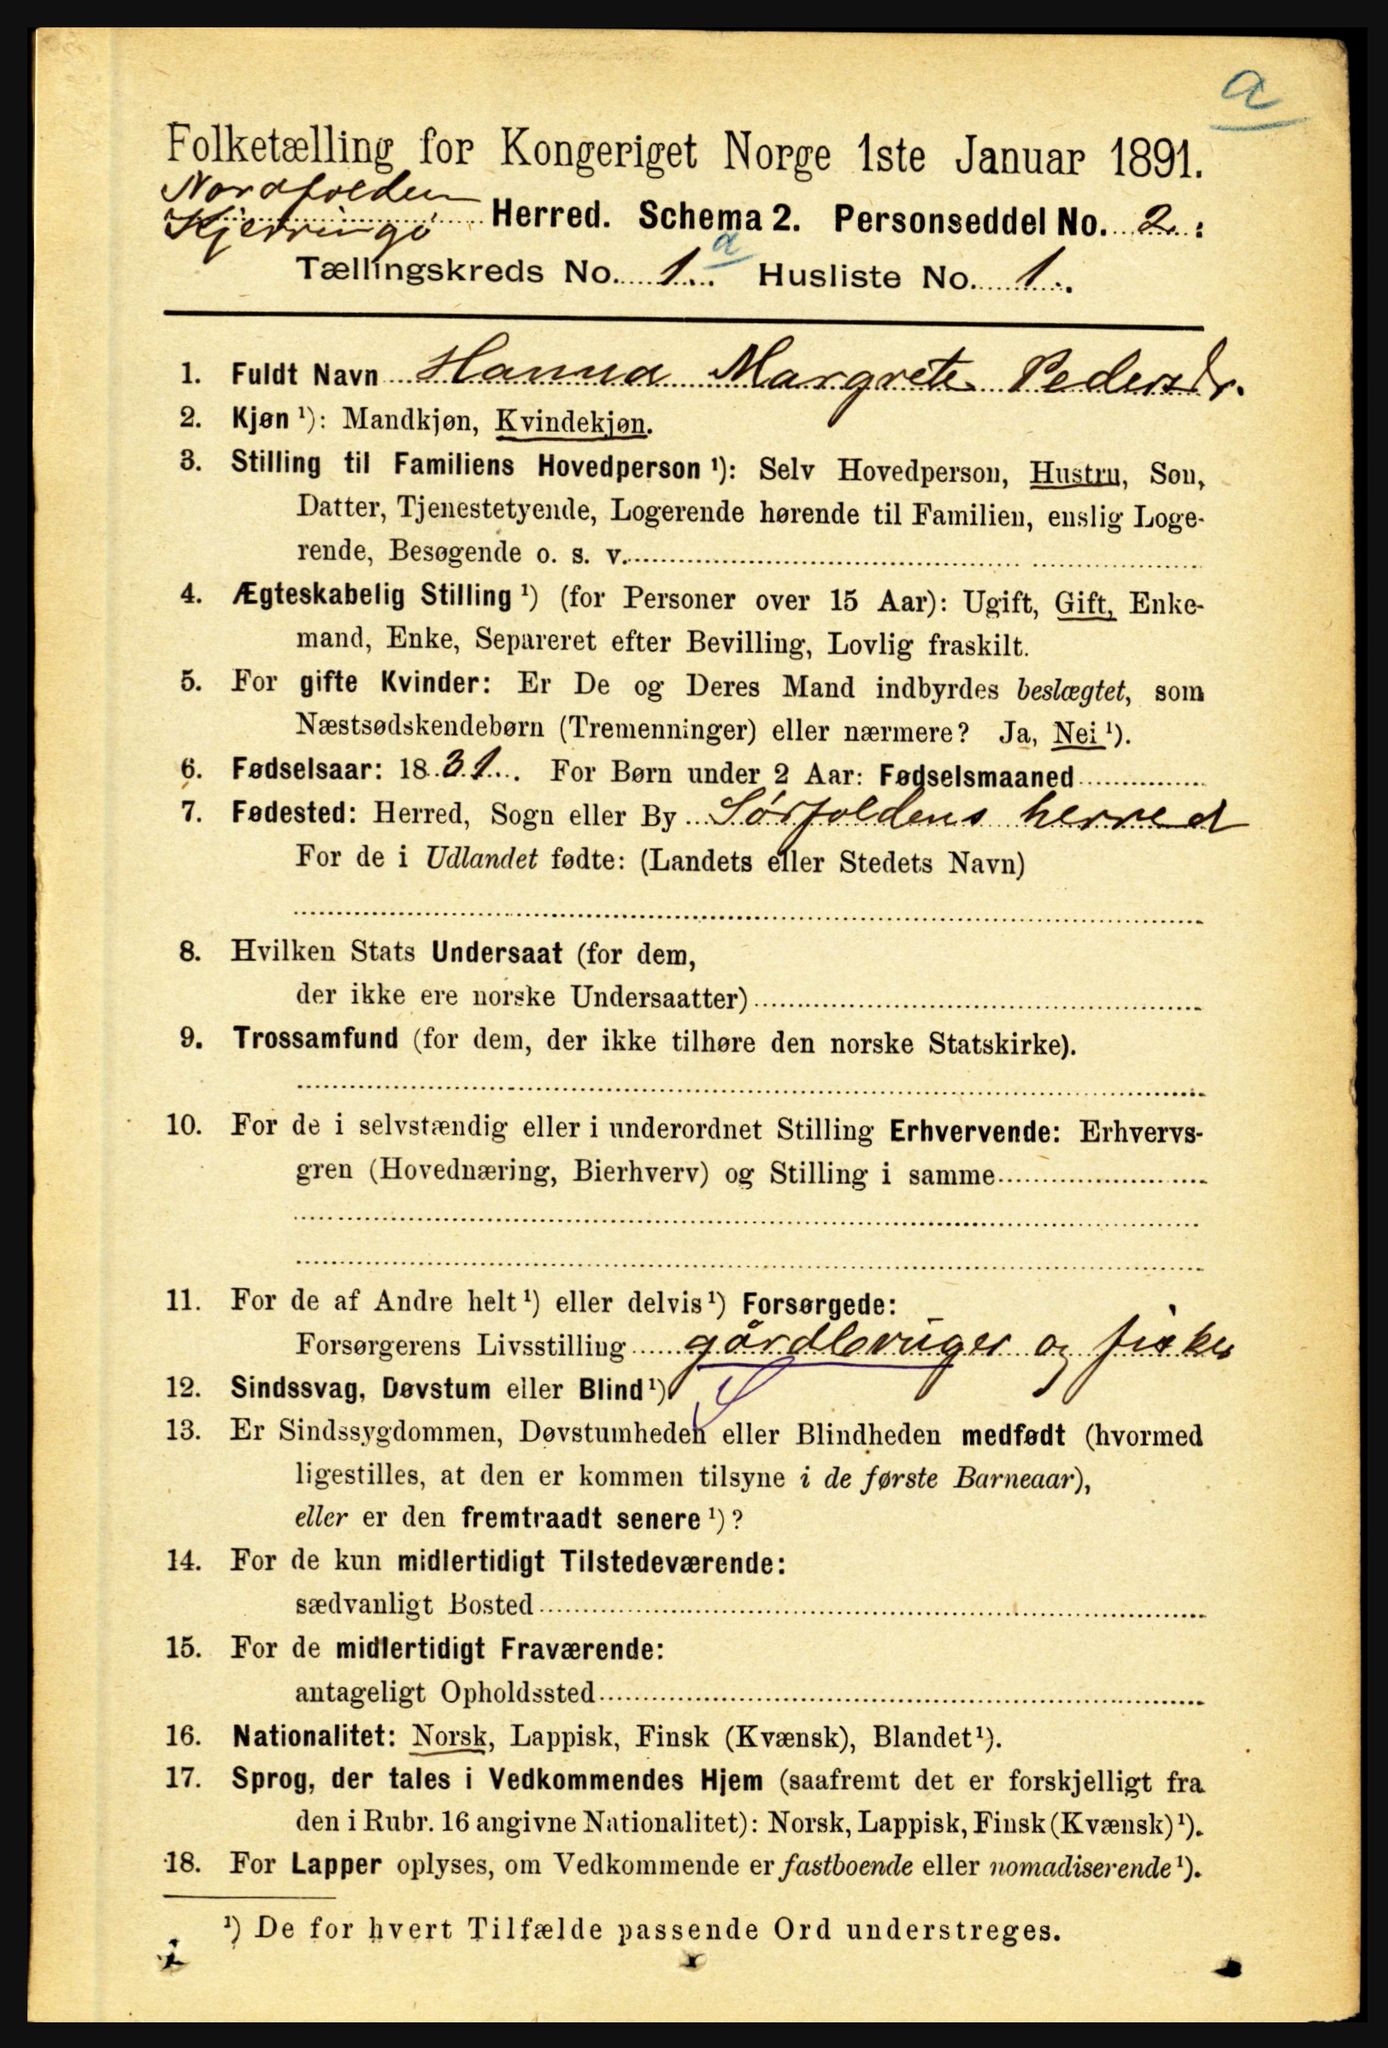 a
Folketælling for Kongeriget Norge 1ste Januar 1891.
Nordfolden
Kjerringø Herred. Schema 2. Personseddel No. 2.:
Tællingskreds No. 1. a Husliste No. 1.
1. Fuldt Navn Hanna Margrete Pedersdr.
2. Kjøn ¹): Mandkjøn, Kvindekjøn.
3. Stilling til Familiens Hovedperson ¹): Selv Hovedperson, Hustru, Søn,
Datter, Tjenestetyende, Logerende hørende til Familien, enslig Loge-
rende, Besøgende o. s. v.
4. Ægteskabelig Stilling ¹) (for Personer over 15 Aar): Ugift, Gift, Enke-
mand, Enke, Separeret efter Bevilling, Lovlig fraskilt.
5. For gifte Kvinder: Er De og Deres Mand indbyrdes beslægtet, som
Næstsødskendebørn (Tremenninger) eller nærmere? Ja, Nei ¹).
6. Fødselsaar: 1831. For Børn under 2 Aar: Fødselsmaaned
7. Fødested: Herred, Sogn eller By Sørfoldens herred
For de i Udlandet fødte: (Landets eller Stedets Navn)
8. Hvilken Stats Undersaat (for dem,
der ikke ere norske Undersaatter)
9. Trossamfund (for dem, der ikke tilhøre den norske Statskirke).
10. For de i selvstændig eller i underordnet Stilling Erhvervende: Erhvervs-
gren (Hovednæring, Bierhverv) og Stilling i samme
11. For de af Andre helt ¹) eller delvis ¹) Forsørgede:
Forsørgerens Livsstilling gårdbruger og fisker
12. Sindssvag, Døvstum eller Blind ¹)
13. Er Sindssygdommen, Døvstumheden eller Blindheden medfødt (hvormed
ligestilles, at den er kommen tilsyne i de første Barneaar),
eller er den fremtraadt senere ¹)?
14. For de kun midlertidigt Tilstedeværende:
sædvanligt Bosted
15. For de midlertidigt Fraværende:
antageligt Opholdssted
16. Nationalitet: Norsk, Lappisk, Finsk (Kvænsk), Blandet ¹).
17. Sprog, der tales i Vedkommendes Hjem (saafremt det er forskjelligt fra
den i Rubr. 16 angivne Nationalitet): Norsk, Lappisk, Finsk (Kvænsk) ¹).
18. For Lapper oplyses, om Vedkommende er fastboende eller nomadiserende ¹).
¹) De for hvert Tilfælde passende Ord understreges.